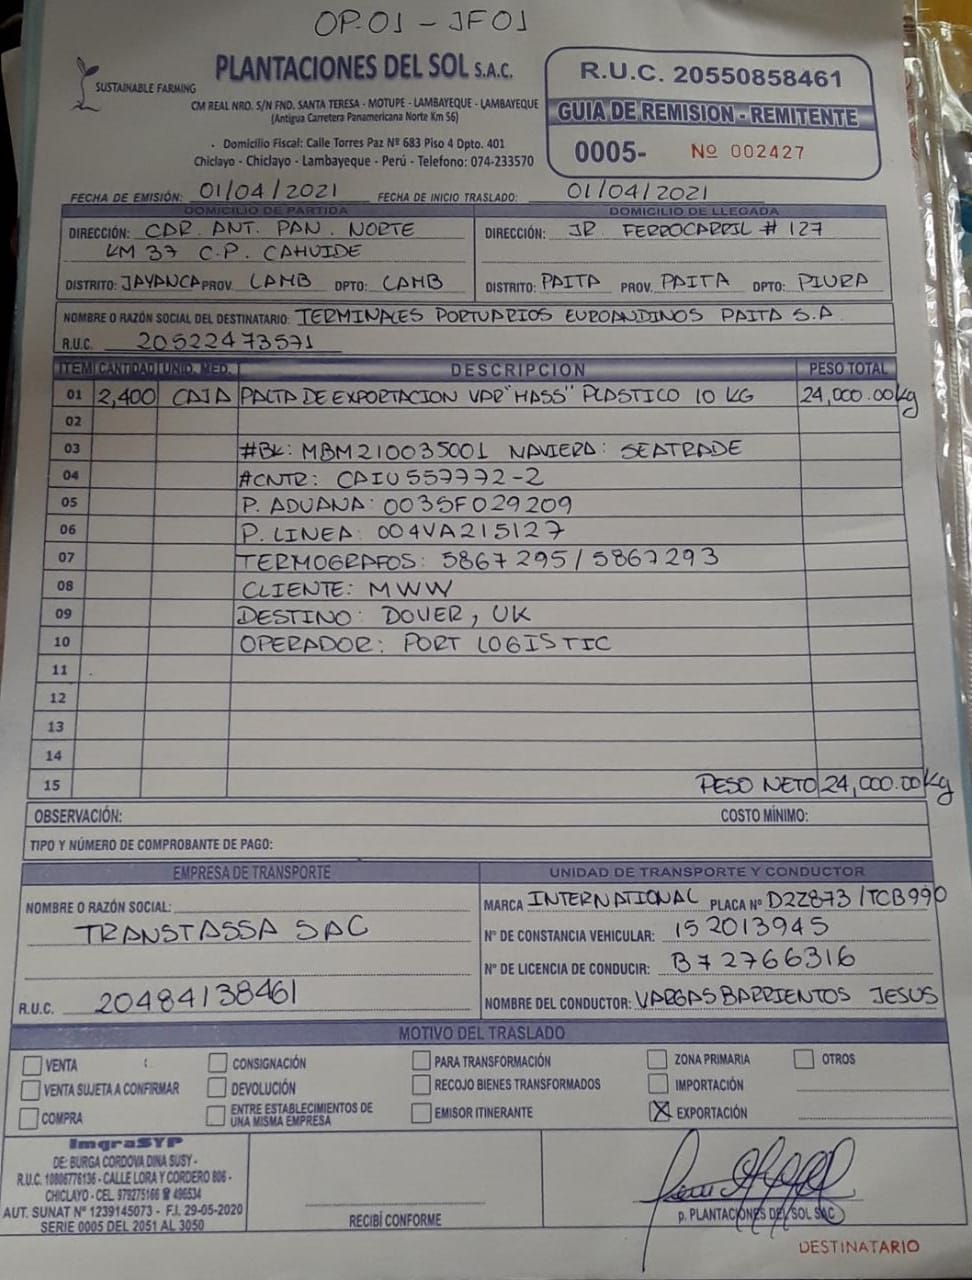 OP.01 - JF01
SUSTAINABLE FARMING
PLANTACIONES DEL SOL S.A.C.
CM REAL NRO. S/N FND. SANTA TERESA - MOTUPE - LAMBAYEQUE - LAMBAYEQUE
(Antigua Carretera Panamericana Norte Km 56)
. Domicilio Fiscal: Calle Torres Paz Nº 683 Piso 4 Dpto. 401
Chiclayo - Chiclayo - Lambayeque - Perú - Telefono: 074-233570
R.U.C. 20550858461
GUIA DE REMISION - REMITENTE
0005- Nº 002427
FECHA DE EMISIÓN: 01/04/2021 FECHA DE INICIO TRASLADO: 01/04/2021
DOMICILIO DE PARTIDA
DIRECCIÓN: CAR. ANT. PAN. NORTE
KM 37 C.P. CAHUIDE
DISTRITO: JAYANCA PROV. LAMB DPTO: LAMB
DOMICILIO DE LLEGADA
DIRECCIÓN: JR. FERROCARRIL # 127
DISTRITO: PAITA PROV. PAITA DPTO: PIURA
NOMBRE O RAZÓN SOCIAL DEL DESTINATARIO: TERMINALES PORTUARIOS EUROANDINOS PAITA S.A.
R.U.C. 20522473571
ITEM CANTIDAD UNID. MED. DESCRIPCION PESO TOTAL
01 2,400 CAJA PALTA DE EXPORTACION VAR "HASS" PLASTICO 10 KG 24,000.00 Kg
02
03 #BK: MBM210035001 NAVIERA: SEATRADE
04 #CNTR: CAIU 557772-2
05 P. ADUANA: 0035F029209
06 P. LINEA: 004VA215127
07 TERMOGRAFOS: 5867295/5867293
08 CLIENTE: MWW
09 DESTINO: DOVER, UK
10 OPERADOR: PORT LOGISTIC
11
12
13
14
15 PESO NETO 24,000.00 Kg
OBSERVACIÓN: COSTO MÍNIMO:
TIPO Y NÚMERO DE COMPROBANTE DE PAGO:
EMPRESA DE TRANSPORTE
NOMBRE O RAZÓN SOCIAL:
TRANSTASSA SAC
R.U.C. 20484138461
UNIDAD DE TRANSPORTE Y CONDUCTOR
MARCA INTERNATIONAL PLACA Nº D2Z873/TCB990
Nº DE CONSTANCIA VEHICULAR: 152013945
Nº DE LICENCIA DE CONDUCIR: B72766316
NOMBRE DEL CONDUCTOR: VARGAS BARRIENTOS JESUS
MOTIVO DEL TRASLADO
VENTA CONSIGNACIÓN PARA TRANSFORMACIÓN ZONA PRIMARIA OTROS
VENTA SUJETA A CONFIRMAR DEVOLUCIÓN RECOJO BIENES TRANSFORMADOS IMPORTACIÓN
COMPRA ENTRE ESTABLECIMIENTOS DE UNA MISMA EMPRESA EMISOR ITINERANTE X EXPORTACIÓN
ImgraSYP
DE: BURGA CORDOVA DINA SUSY -
R.U.C. 10806776136 - CALLE LORA Y CORDERO 806 -
CHICLAYO - CEL. 979275166 ☎ 496534
AUT. SUNAT Nº 1239145073 - F.I. 29-05-2020
SERIE 0005 DEL 2051 AL 3050
RECIBÍ CONFORME
p. PLANTACIONES DEL SOL SAC
DESTINATARIO